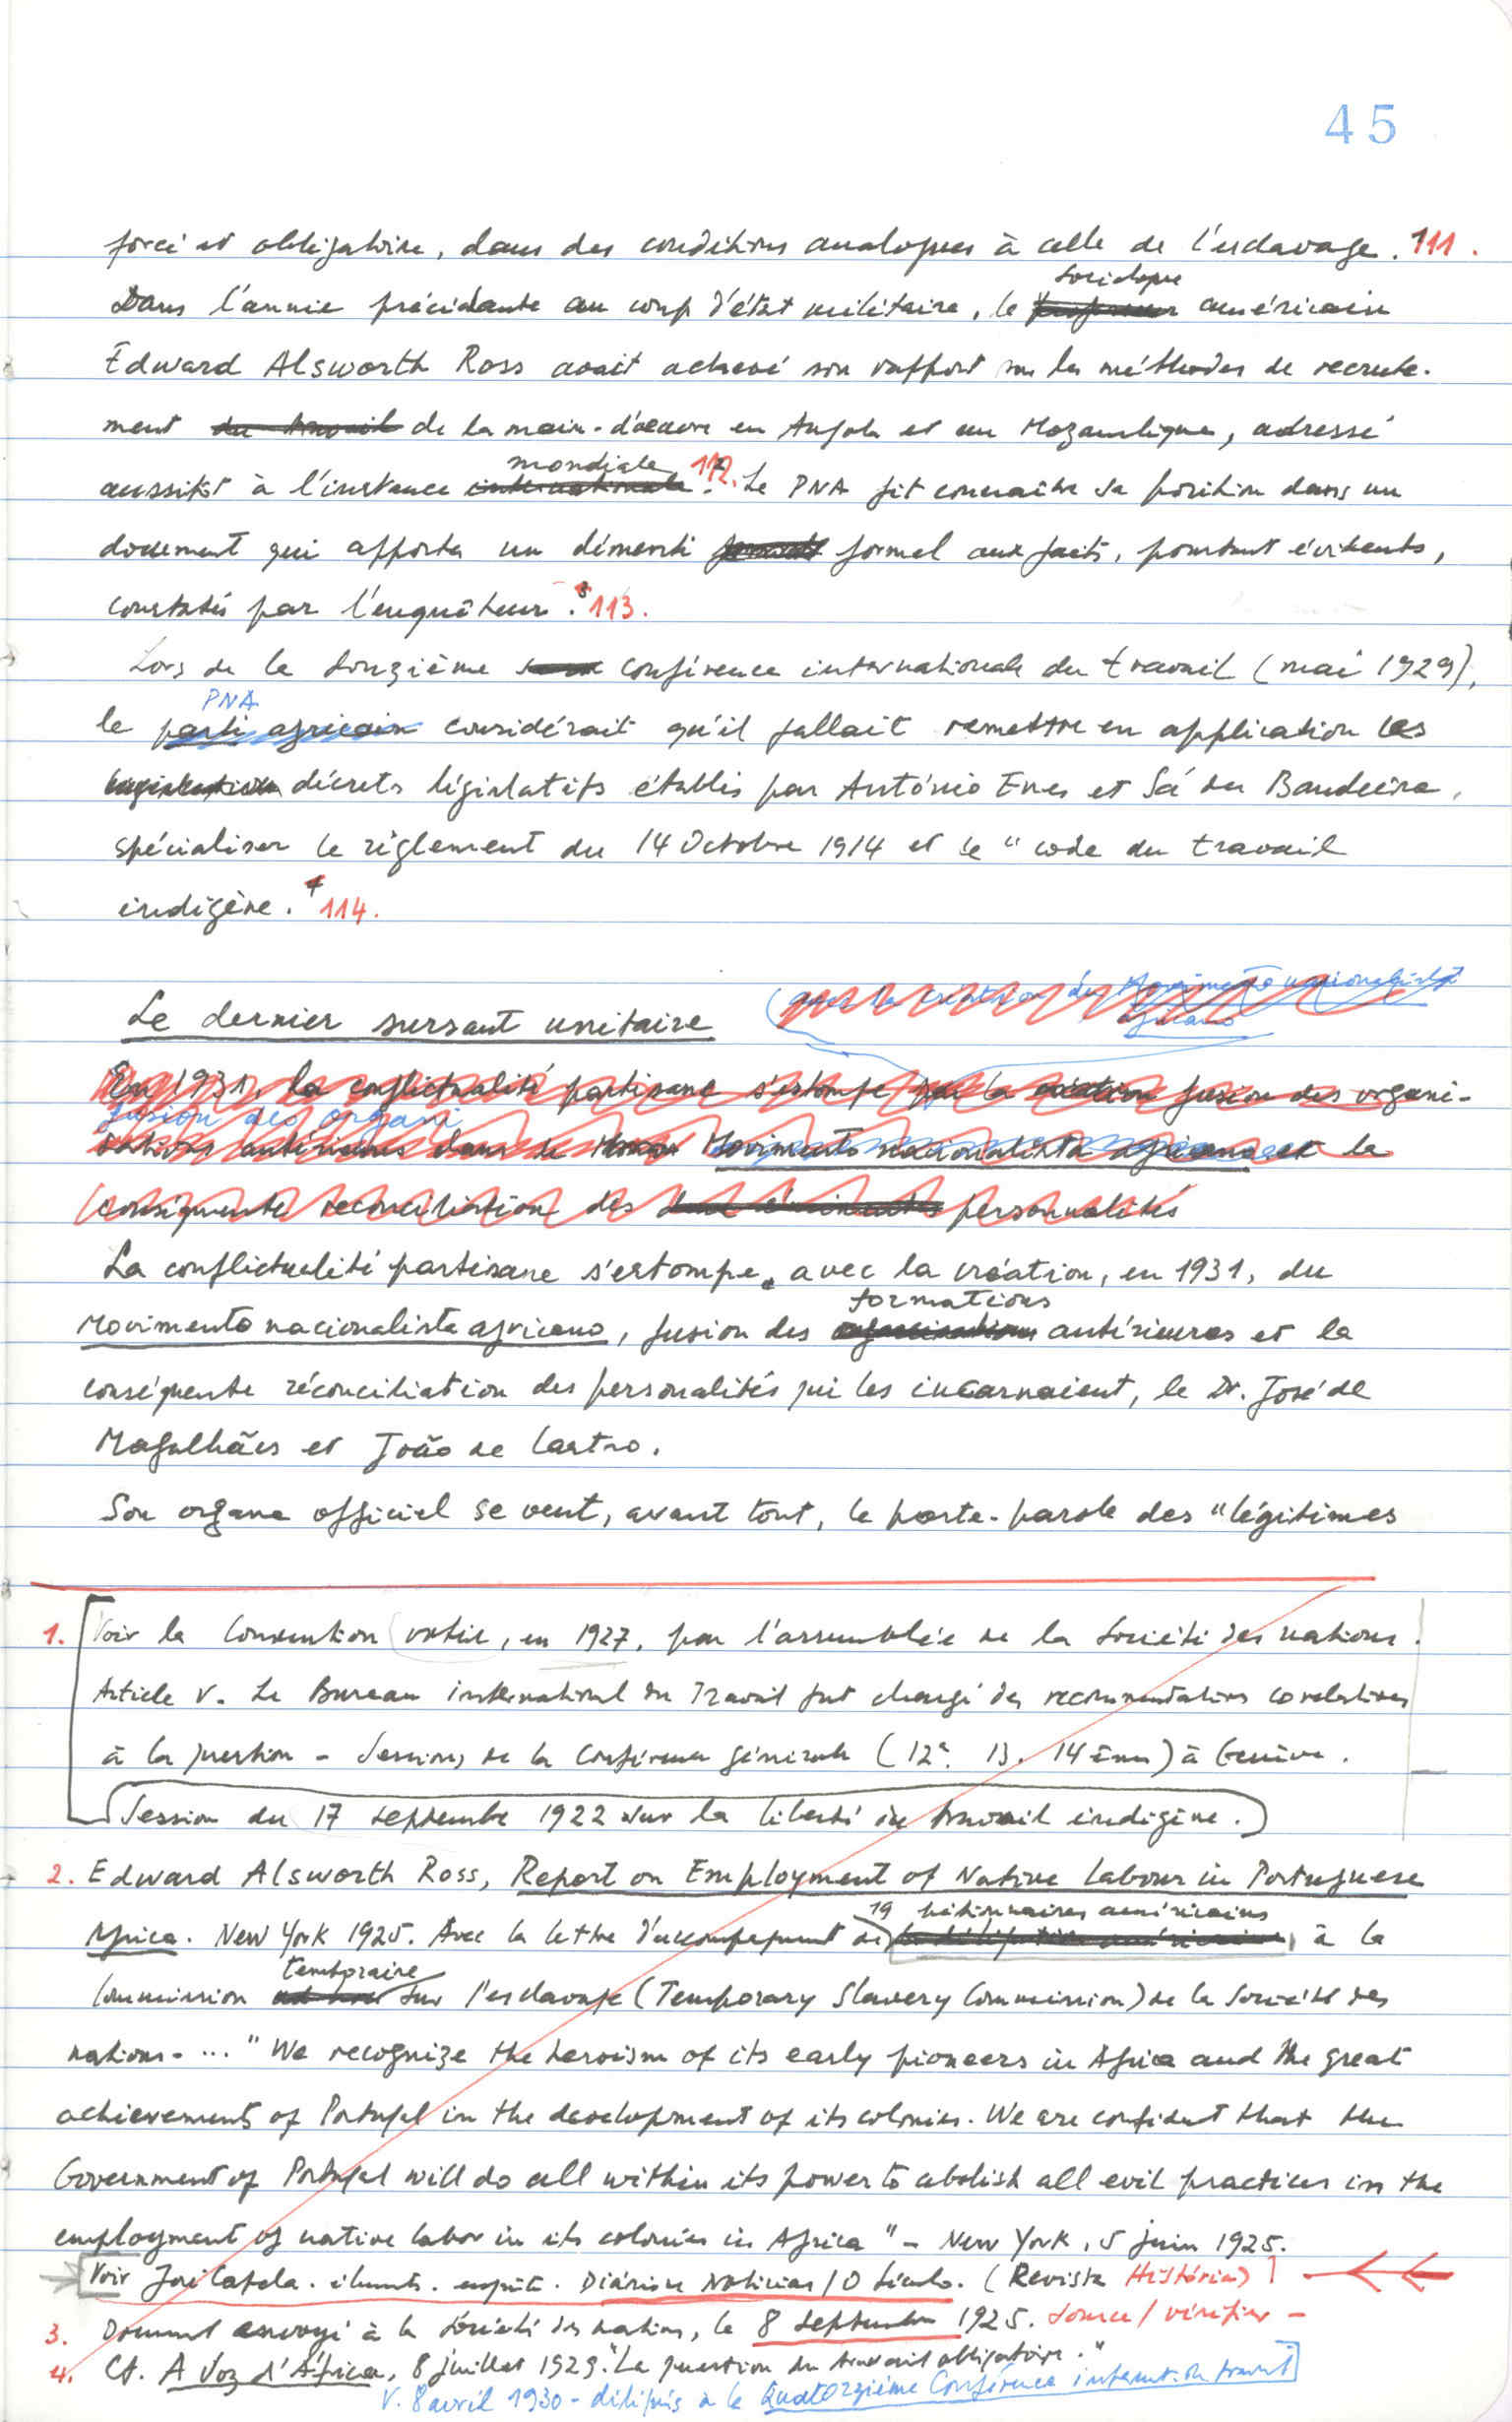 45
forcé et obligatoire, dans des conditions analogues à celle de l'esclavage. 111.
sociologue
Dans l'année précédante au coup d'état militaire, le professeur américain
Edward Alsworth Ross avait achevé son rapport sur les méthodes de recrute-
ment du travail de la main-d'œuvre en Angola et au Mozambique, adressé
mondiale
aussitôt à l'instance internationale. 112. Le PNA fit connaître sa position dans un
document qui apporta un démenti formel aux faits, pourtant évidents,
constatés par l'enquêteur. 3 113.
Lors de la douzième conférence internationale du travail (mai 1929),
PNA
le parti africain considérait qu'il fallait remettre en application les
législation décrets législatifs établis par António Enes et Sá da Bandeira,
spécialiser le règlement du 14 Octobre 1914 et le "code du travail
indigène. 4 114.
(avec la création du Movimento nacionalista
africano
Le dernier sursaut unitaire
En 1931, la conflictualité partisane s'estompe par la création fusion des organi-
fusion des organi
sations antérieures dans le Movimento nacionalista africano et la
conséquente réconciliation des personnalités
La conflictualité partisane s'estompe, avec la création, en 1931, du
formations
Movimento nacionalista africano, fusion des organisations antérieures et la
conséquente réconciliation des personalités qui les incarnaient, le Dr. José de
Magalhães et João de Castro.
Son organe officiel se veut, avant tout, le porte-parole des "légitimes
1. Voir la Convention votée, en 1927, par l'assemblée de la Société des nations.
Article V. Le Bureau international du Travail fut chargé des recommendations corelatives
à la question - Sessions de la Conférence générale (12e. 13. 14ème) à Genève.
Session du 17 septembre 1922 sur la liberté du travail indigène.)
2. Edward Alsworth Ross, Report on Employment of Native Labour in Portuguese
19 pétionnaires américains
Africa. New York 1925. Avec la lettre d'accompagnement de la délégation américaine, à la
temporaire
Commission ad hoc sur l'esclavage (Temporary Slavery Commission) de la Société des
nations - ... "We recognize the heroism of its early pioneers in Africa and the great
achievements of Portugal in the development of its colonies. We are confident that the
Government of Portugal will do all within its power to abolish all evil practices in the
employment of native labor in its colonies in Africa" - New York, 5 juin 1925.
Voir José Capela. Diário de Notícias / O Século. (Revista História)
3. Document envoyé à la Société des nations, le 8 septembre 1925. source / vérifier -
4. Cf. A Voz d'África, 8 juillet 1929. "La question du travail obligatoire."
V. 8 avril 1930 - délégués à la Quatorzième Conférence internat. du travail